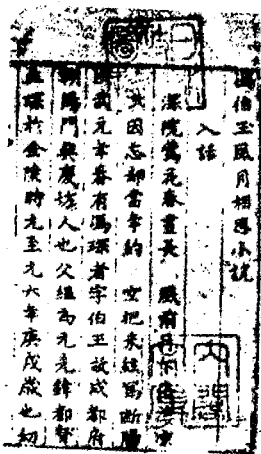 馮伯玉風月相思小說
入話
深院鶯花春晝長 風前月下淒凉
只因忘却當年約 空把朱絃寫斷腸
洪武元年春有馮琛者字伯玉故成都府
門興慶坊人也父元先鋒都督
琛於金陵時元至元六年庚戌歲也幼